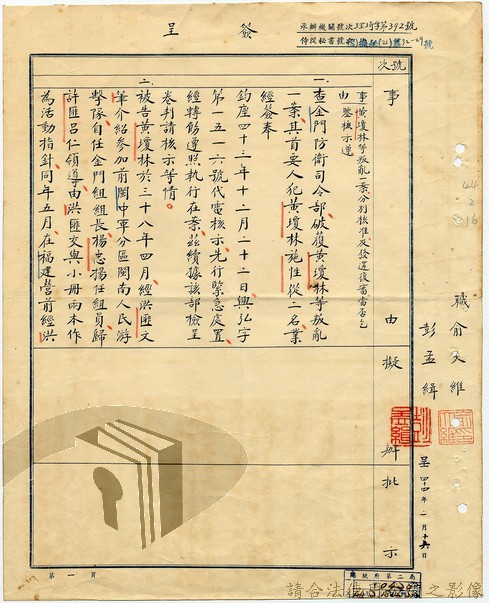 簽呈
承辦機關號次
侍從秘書號
號次
事由
擬辦
批示
職俞大維
彭孟緝
呈四十四年二月十六日
事由 黃瓊林等叛亂一案分別核准及發還復審當否乞
鑒核示遵
一、查金門防衛司令部破獲黃瓊林等叛亂
一案其首要人犯黃瓊林施性從二名業
經簽奉
鈞座四十三年十二月二十二日興弘字
第一五一六號代電核示先行緊急處置
經轉飭遵照執行在案茲續據該部檢呈
卷判請核示等情
二、被告黃瓊林於三十八年四月經洪匪文
介紹參加前閩中軍分區閩南人民游
擊隊自任金門組組長楊忠揚任組員歸
計匪呂仁領導由洪匪文與小冊兩本作
為活動指針同年五月在福建營前經洪
第一頁
總統府第二局
請合法使用之影像